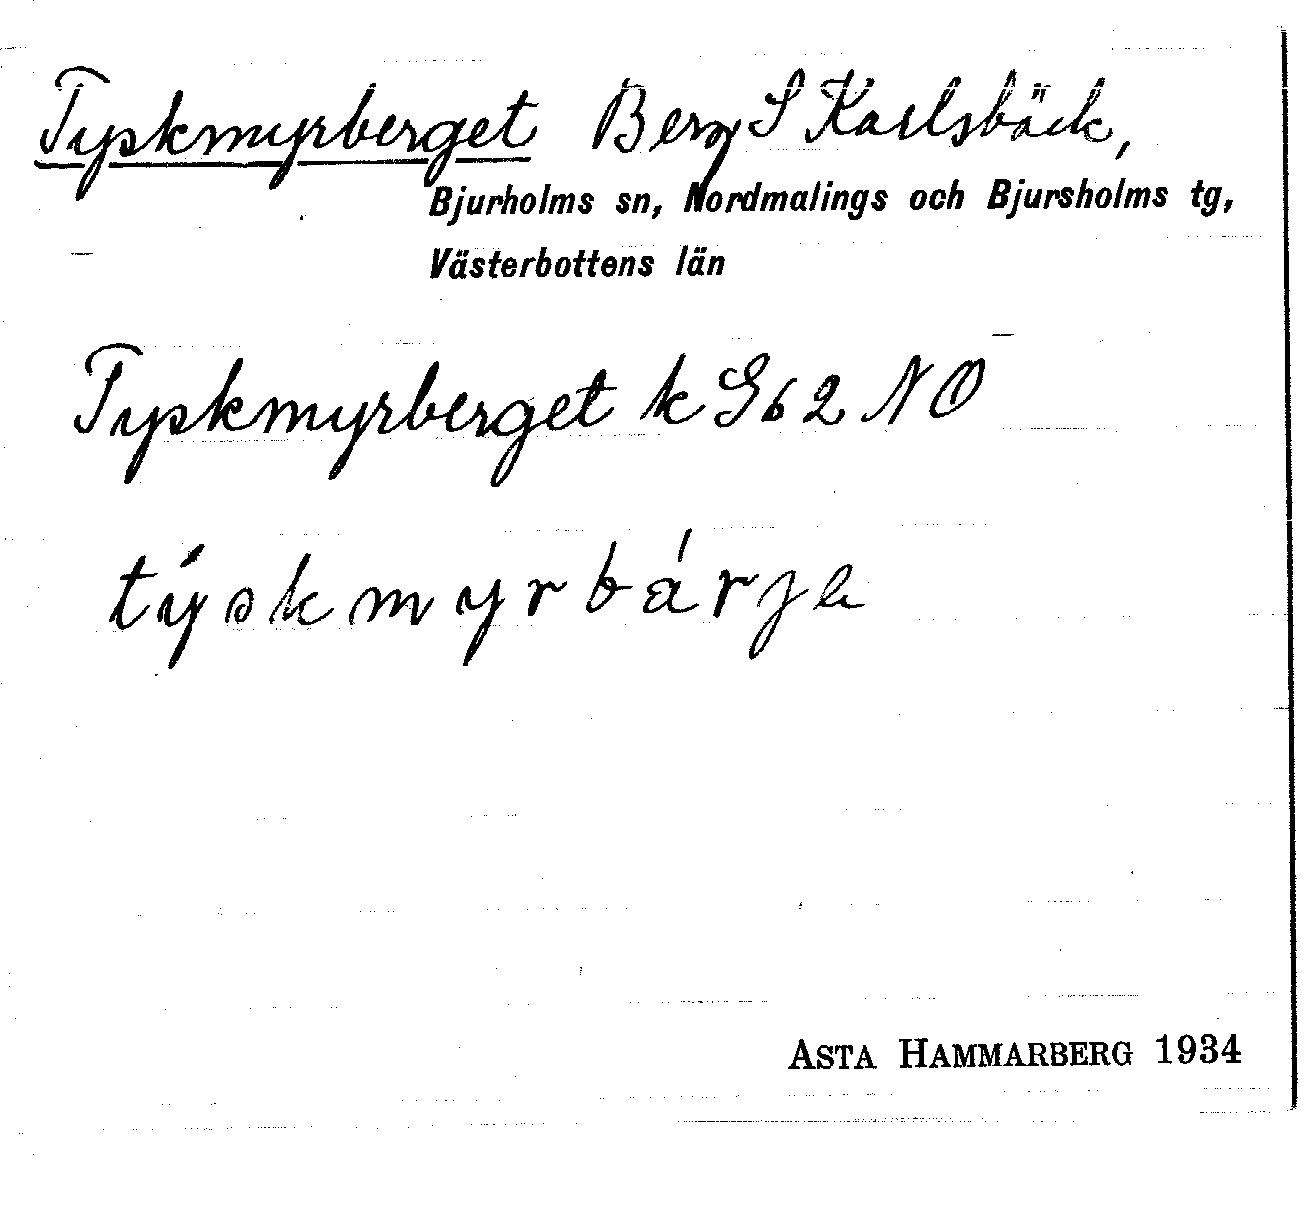 Tyskmyrberget Berg S Karlsbäck,
Bjurholms sn, Nordmalings och Bjursholms tg,
Västerbottens län
Tyskmyrberget k Gb 2 NO
týskmyrbárje
ASTA HAMMARBERG 1934